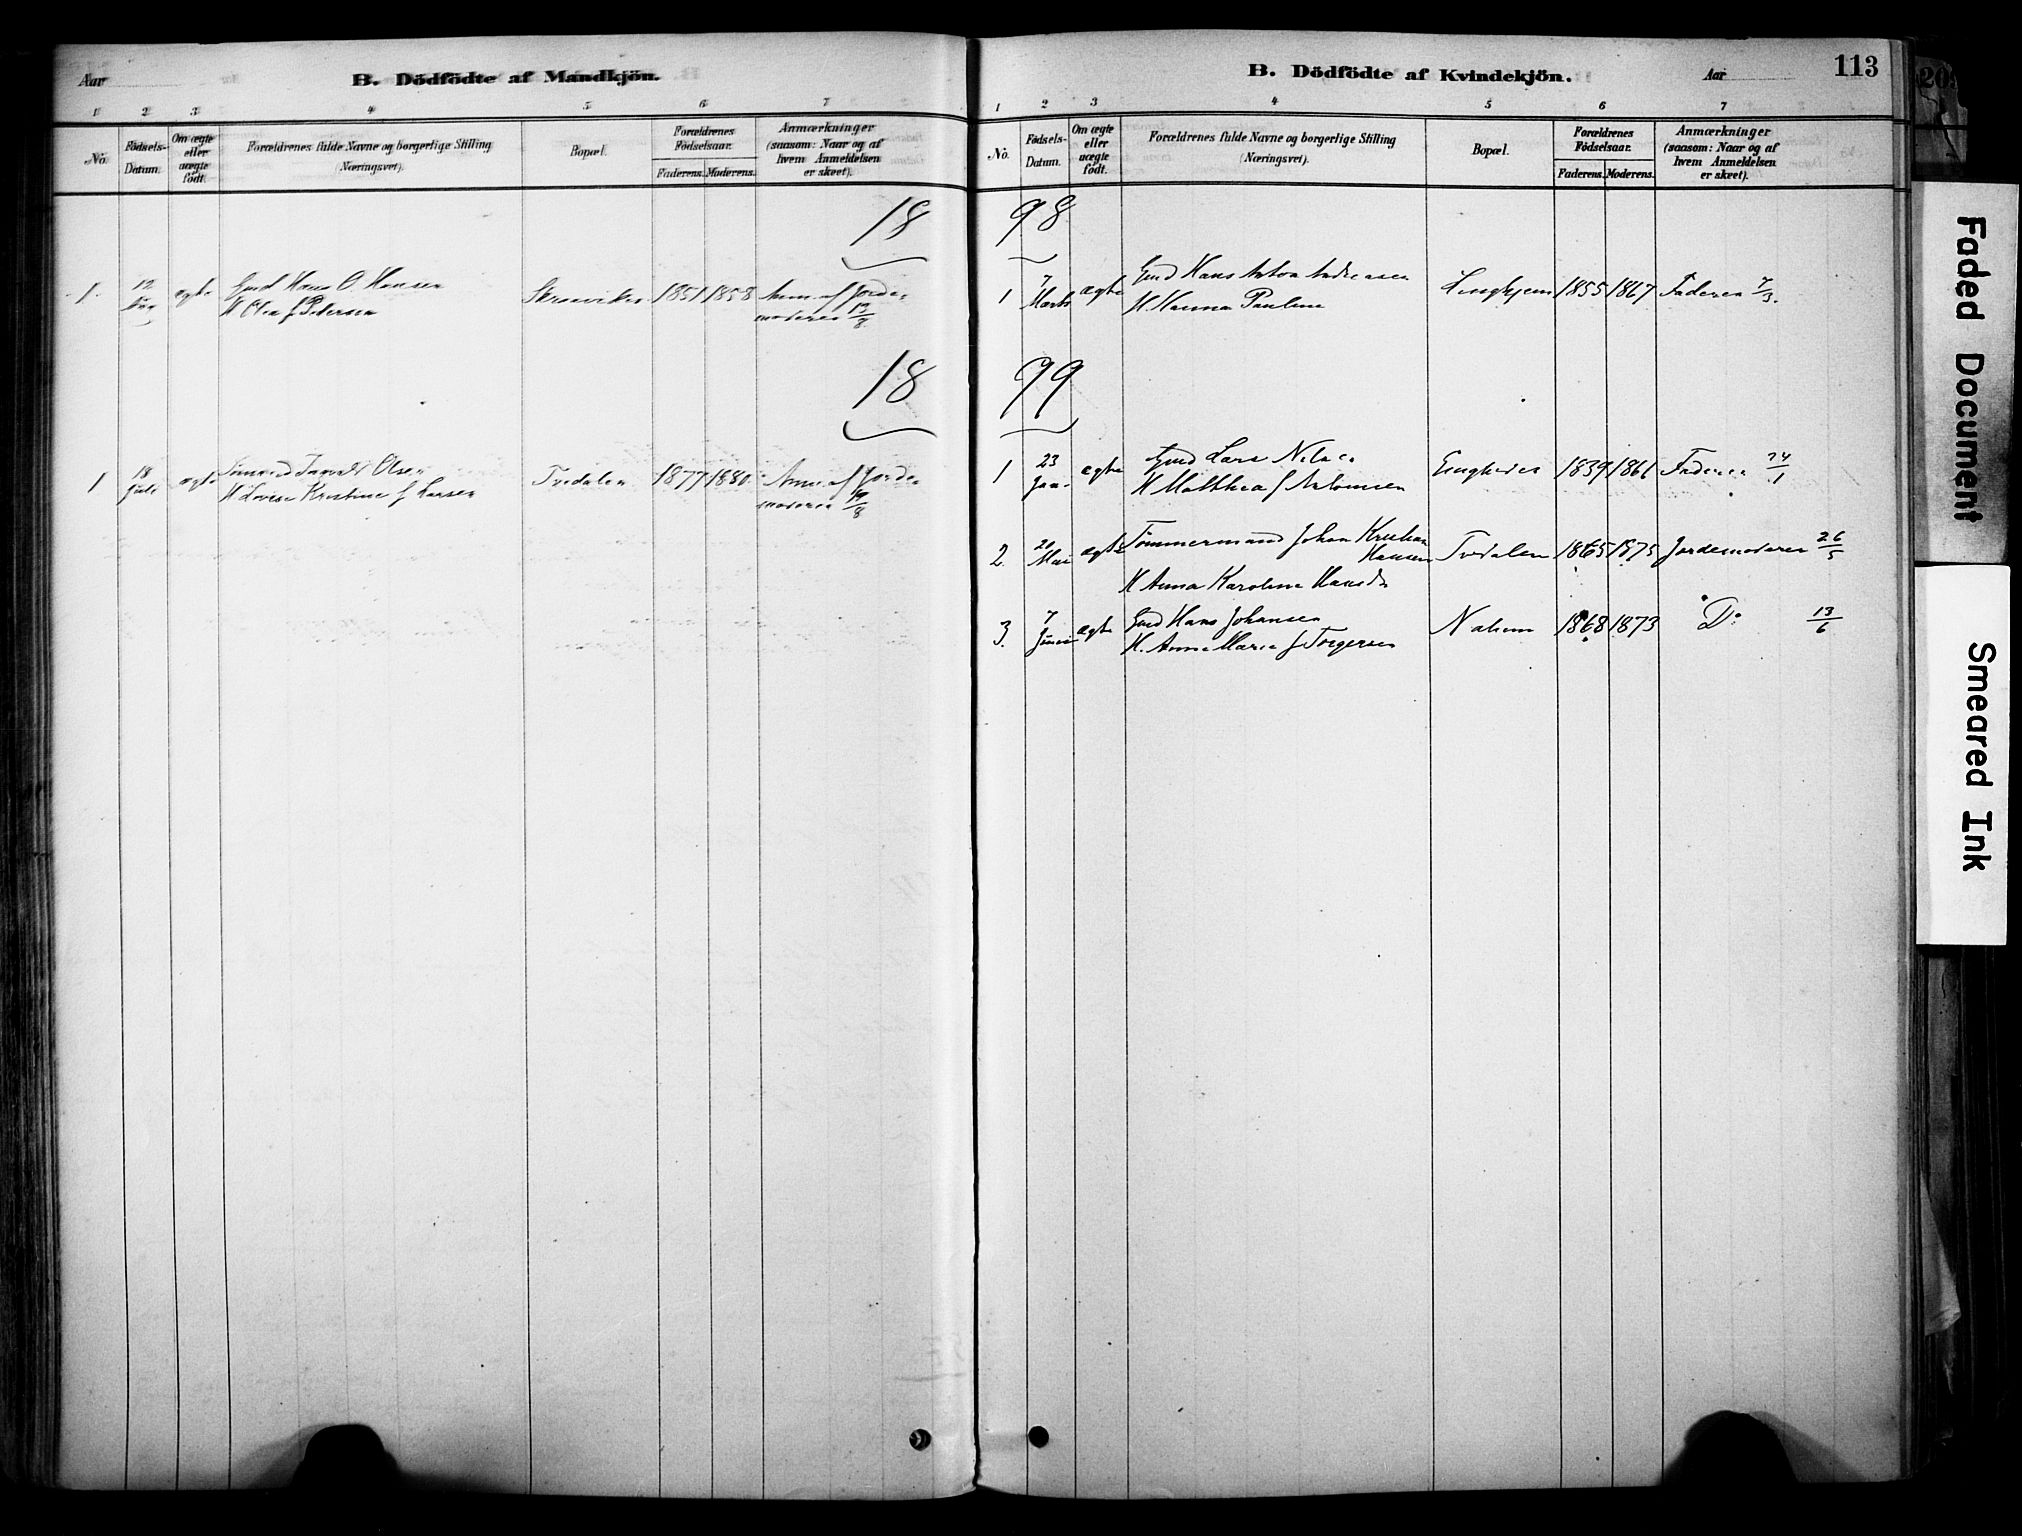 Aar
B. Dödfödte af Mandkjön.
1 2 3 4 5 6 7
No.
Födsels-Datum.
Om ægte eller uægte födt.
Forældrenes fulde Navne og borgerlige Stilling (Næringsvei).
Bopæl.
Forældrenes Födselsaar.
Faderens. Moderens.
Anmærkninger (saasom: Naar og af hvem Anmeldelsen er skeet).
18
1. 12 ægte Gmd Hans O. Hansen 1851 1858 Anm. af Jorde-
H Olea f Petersen moderen 13/8
18
1 18 Juli ægte Tømmermd Ingvald Olsen Tvedalen 1877 1880 Anm. af Jorde-
H Lovise Kristine f Larsen moderen 19/8
B. Dödfödte af Kvindekjön.
Aar
113
1 2 3 4 5 6 7
No.
Födsels-Datum.
Om ægte eller uægte födt.
Forældrenes fulde Navne og borgerlige Stilling (Næringsvei).
Bopæl.
Forældrenes Födselsaar.
Faderens. Moderens.
Anmærkninger (saasom: Naar og af hvem Anmeldelsen er skeet).
98
1 7 Marts ægte Gmd Hans Anton Andreasen 1855 1867 Faderen 7/3.
H. Hanna Pauline
99
1 23 Jan. ægte Gmd Lars Nilsen 1839 1861 Faderen 24/1
H Matthea f Antonsen
2. 20 Mai ægte Tømmermand Johan Kristian Hansen Tvedalen 1865 1875 Jordemoderen 26/5
H Anna Karoline Hansdr
3. 7 Juni ægte Gmd Hans Johansen Nalum 1868 1873 Do 13/6
H. Anne Marie f Torgersen
Faded Document
Smeared Ink